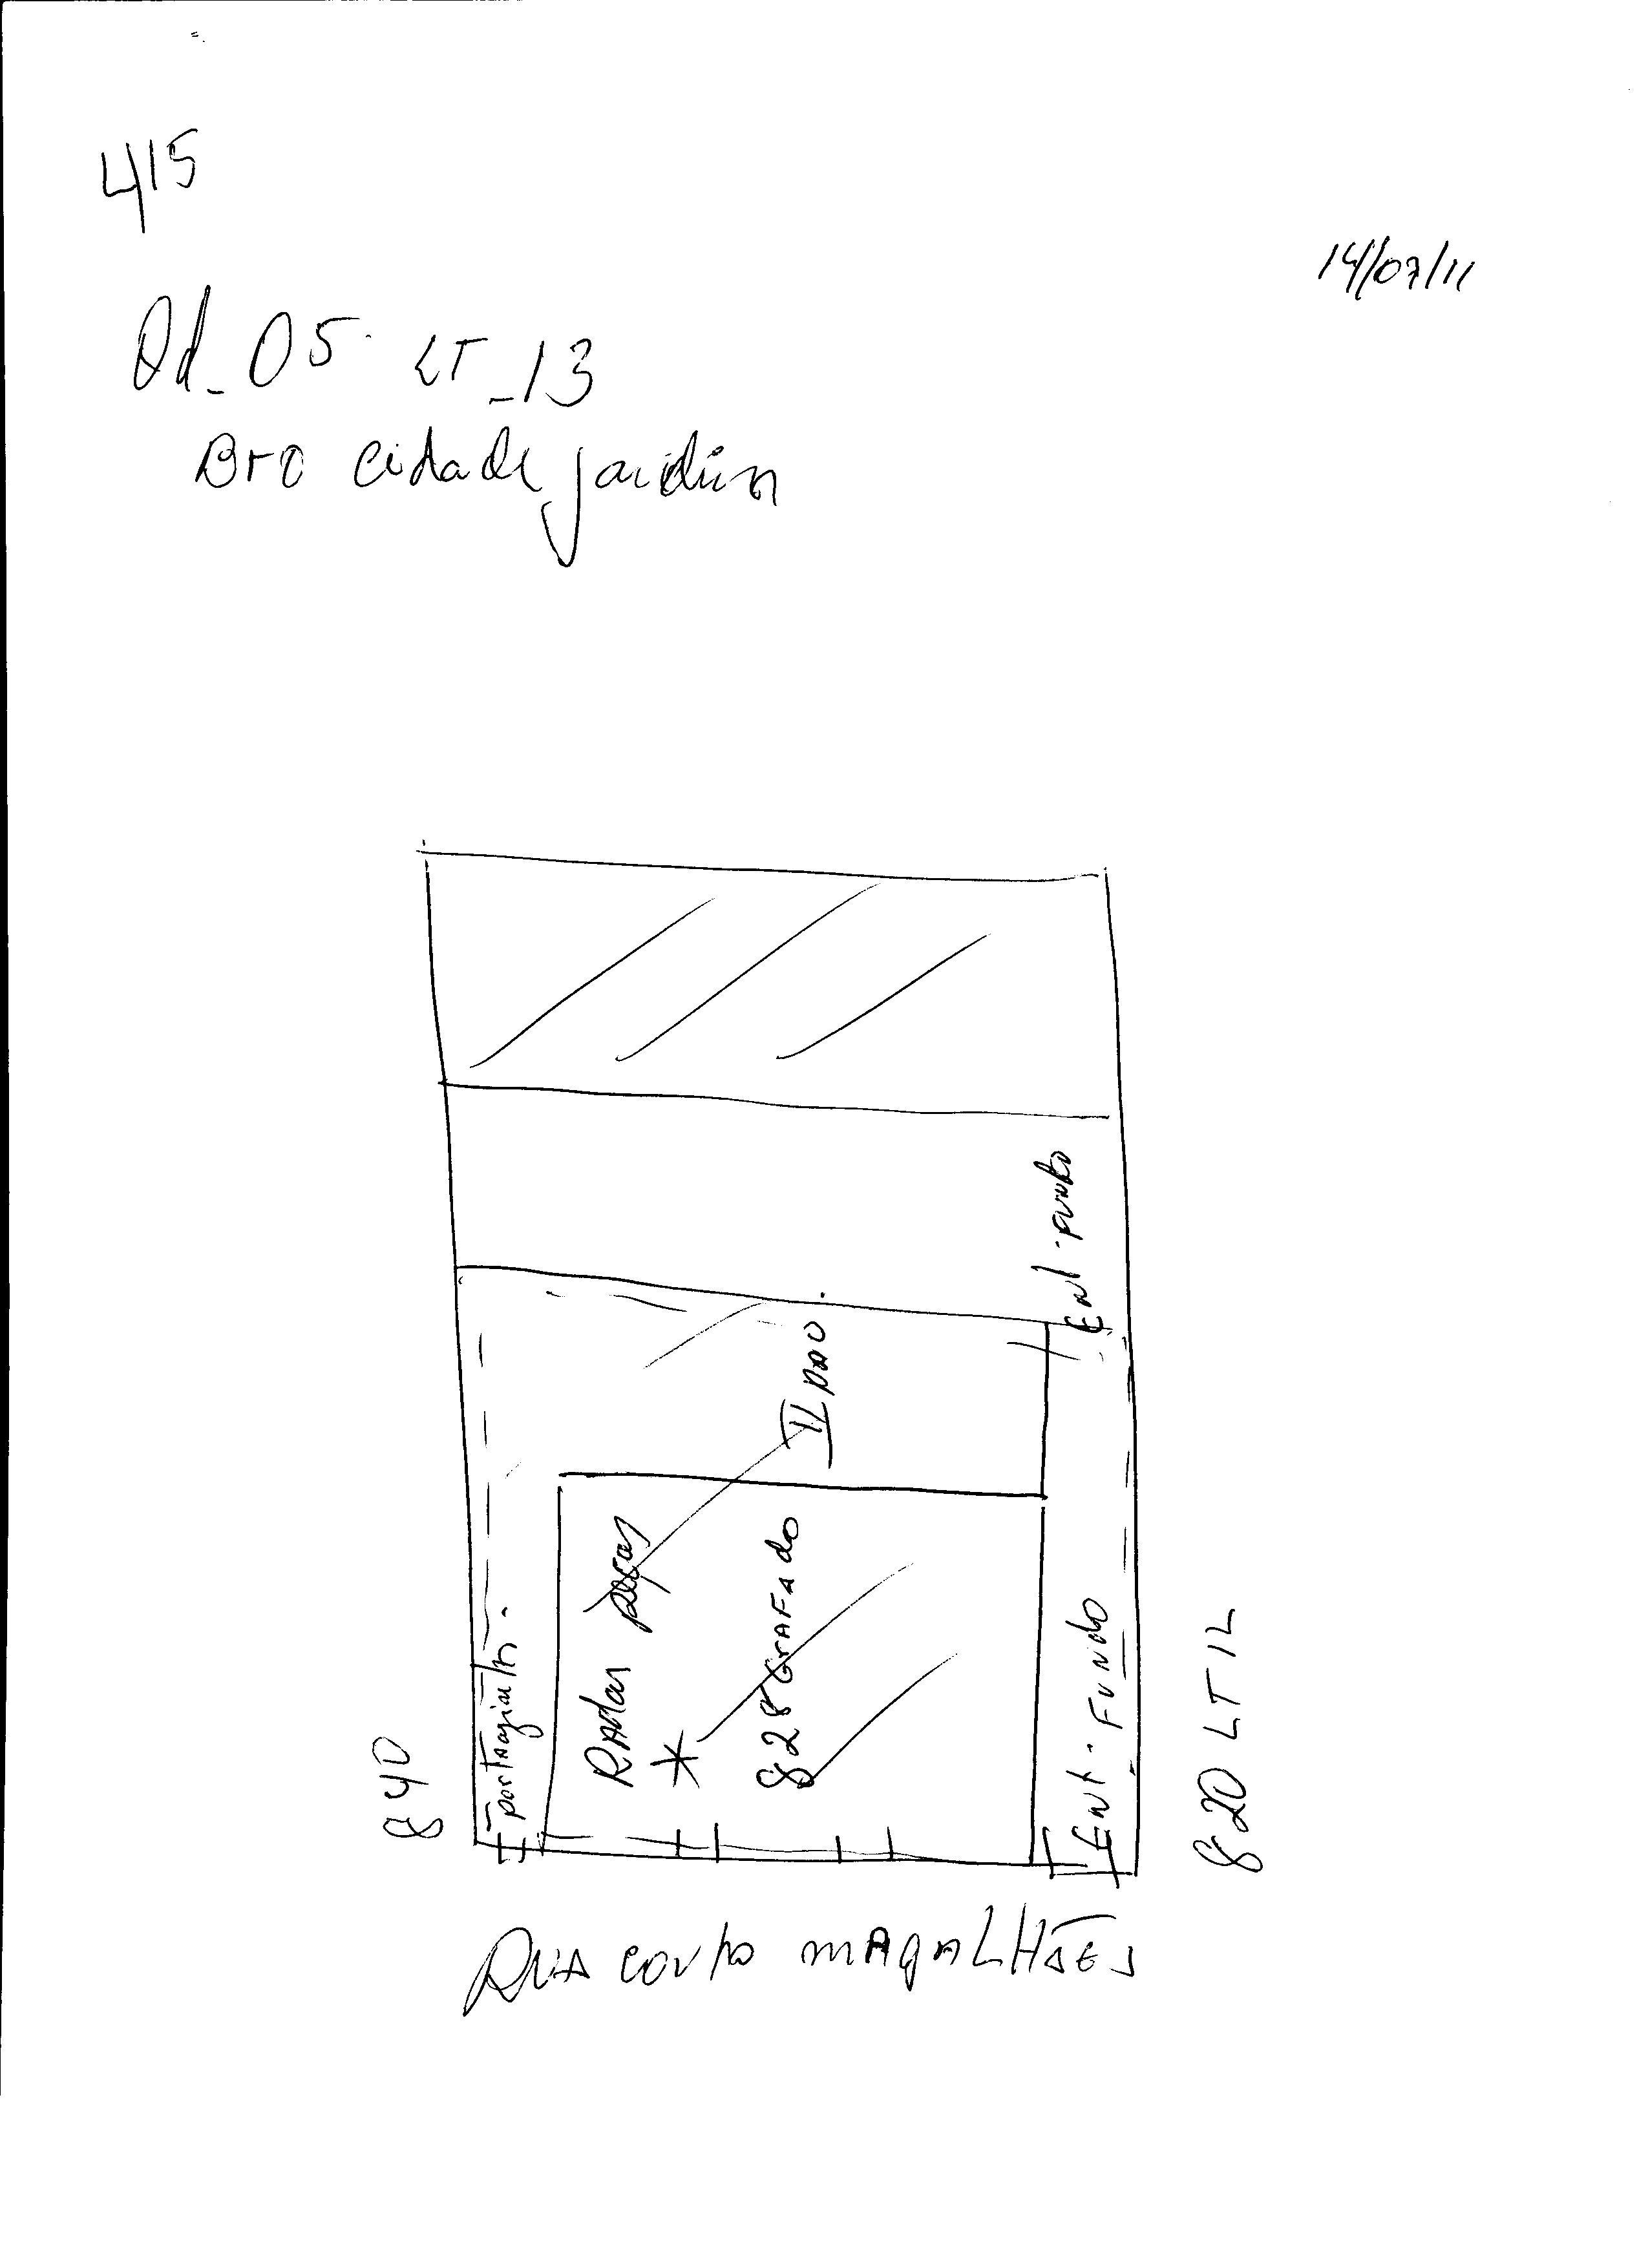 415
14/07/11
Qd_05 LT_13
Bro cidade jardim
Ent. Fundo
II pao
Radar peças
828 Grafado
Ent. Fundo
840
820 LT 12
RUA couto mAgALHÃES